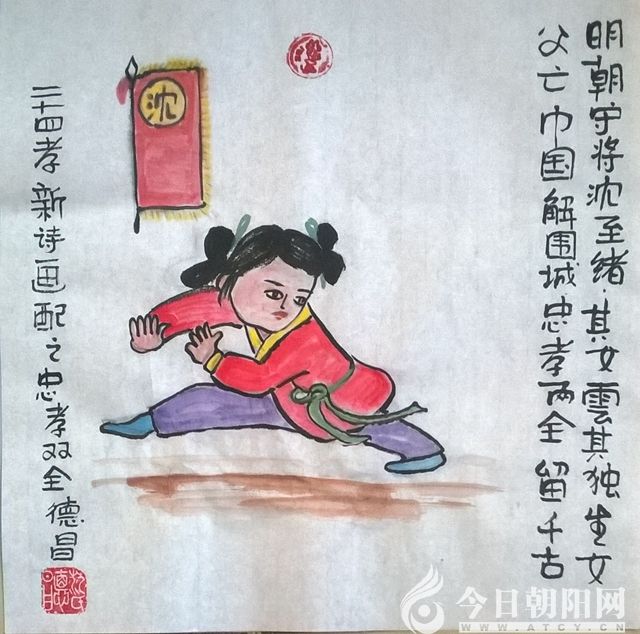 明朝守将沈至绪.其女雲其独生女
父亡巾国解围城忠孝两全留千古
沈
二十四孝新诗画配之忠孝双全 德昌
今日朝阳网
WWW.ATCY.CN